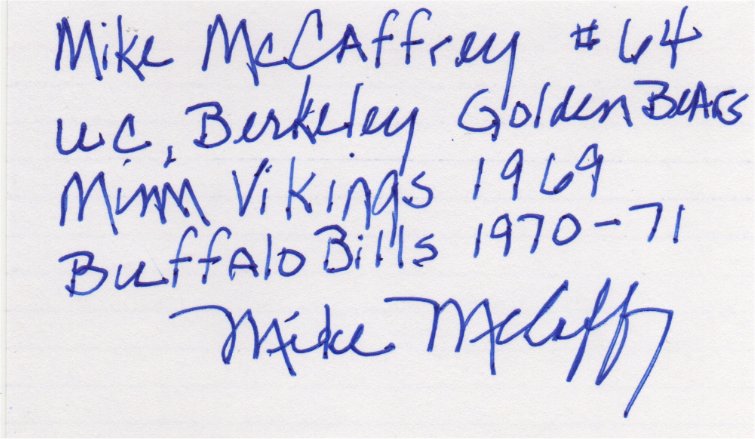 Mike McCaffrey #64
U.C, Berkeley Golden Bears
Minn Vikings 1969
Buffalo Bills 1970-71
Mike McCaffrey